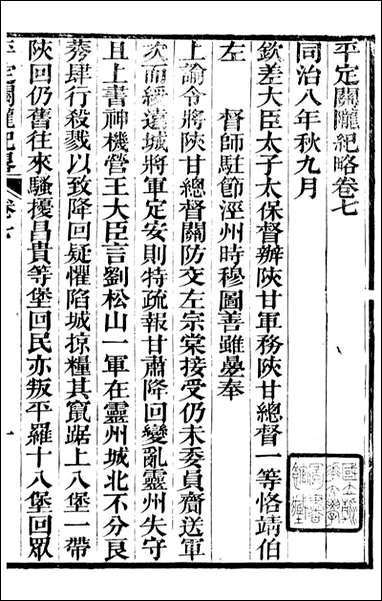 平定關隴紀略卷七
同治八年秋九月
欽差大臣太子太保督辦陝甘軍務陝甘總督一等恪靖伯
左　督師駐節涇州時穆圖善雖疊奉
上諭令將陝甘總督關防交左宗棠接受仍未委員齎送軍
次而綏遠城將軍定安則特疏報甘肅降回變亂靈州失守
且上書神機營王大臣言劉松山一軍在靈州城北不分良
莠肆行殺戮以致降回疑懼陷城掠糧其竄踞上八堡一帶
陝回仍舊往來騷擾昌貴等堡回民亦叛平羅十八堡回眾
平定關隴紀略
卷七
一